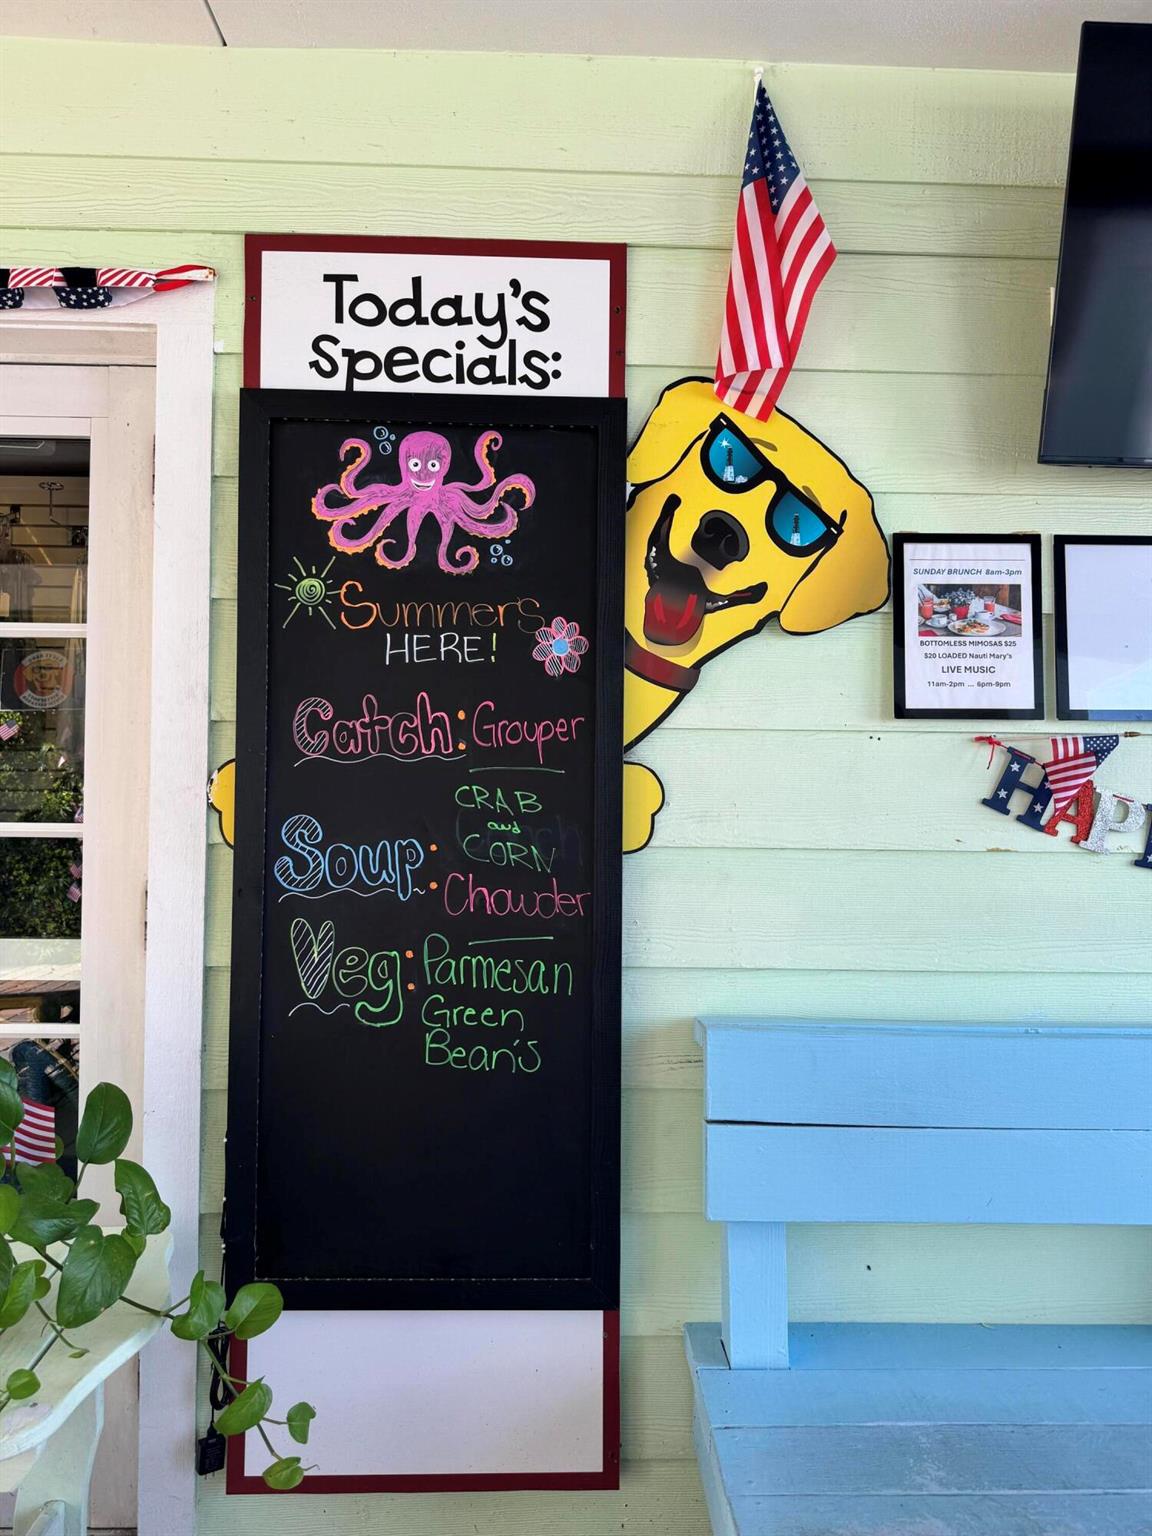 Today's
Specials:
Summer's
HERE!
Catch: Grouper
CRAB
and
CORN
Soup: Chowder
Veg: Parmesan
Green
Bean's
SUNDAY BRUNCH 8am-3pm
BOTTOMLESS MIMOSAS $25
$20 LOADED Nauti Mary's
LIVE MUSIC
11am-2pm ... 6pm-9pm
HAP